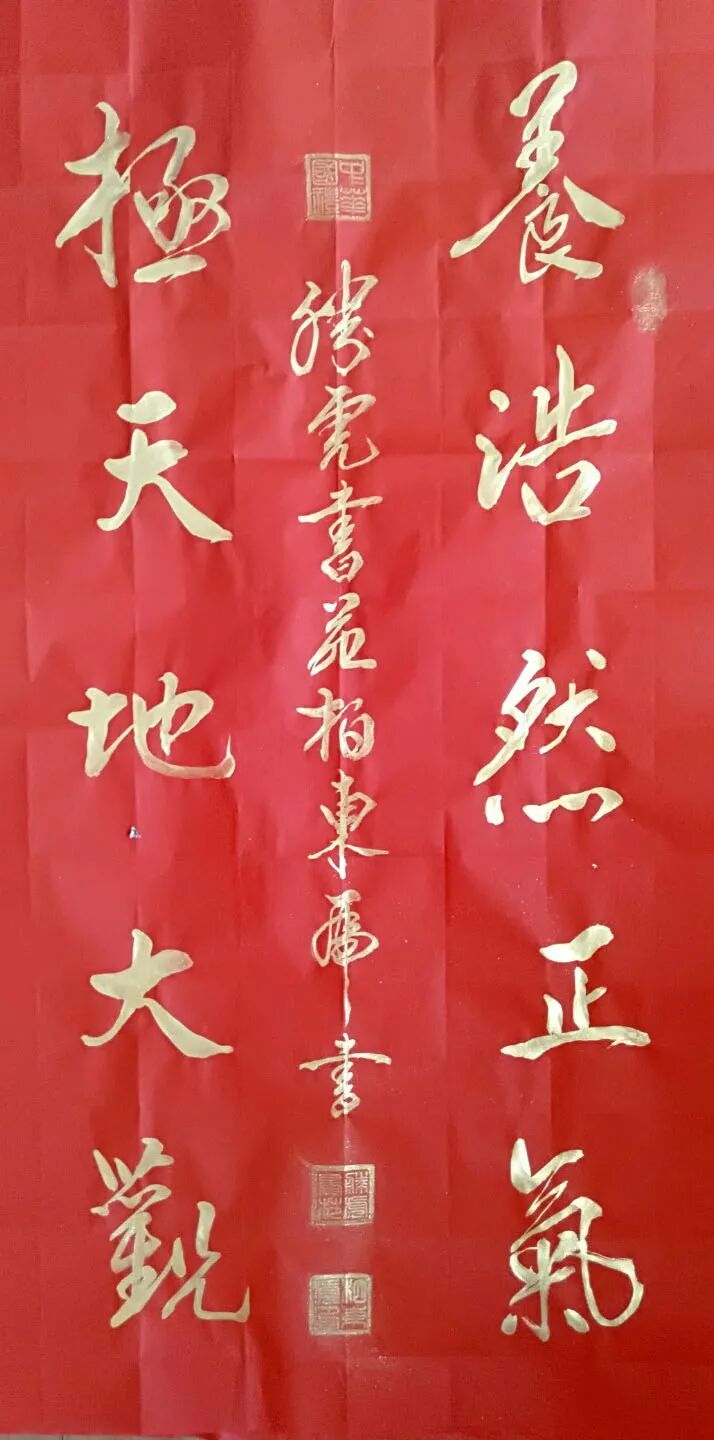 養浩然正氣
極天地大觀
勝虎書苑柏東虎書